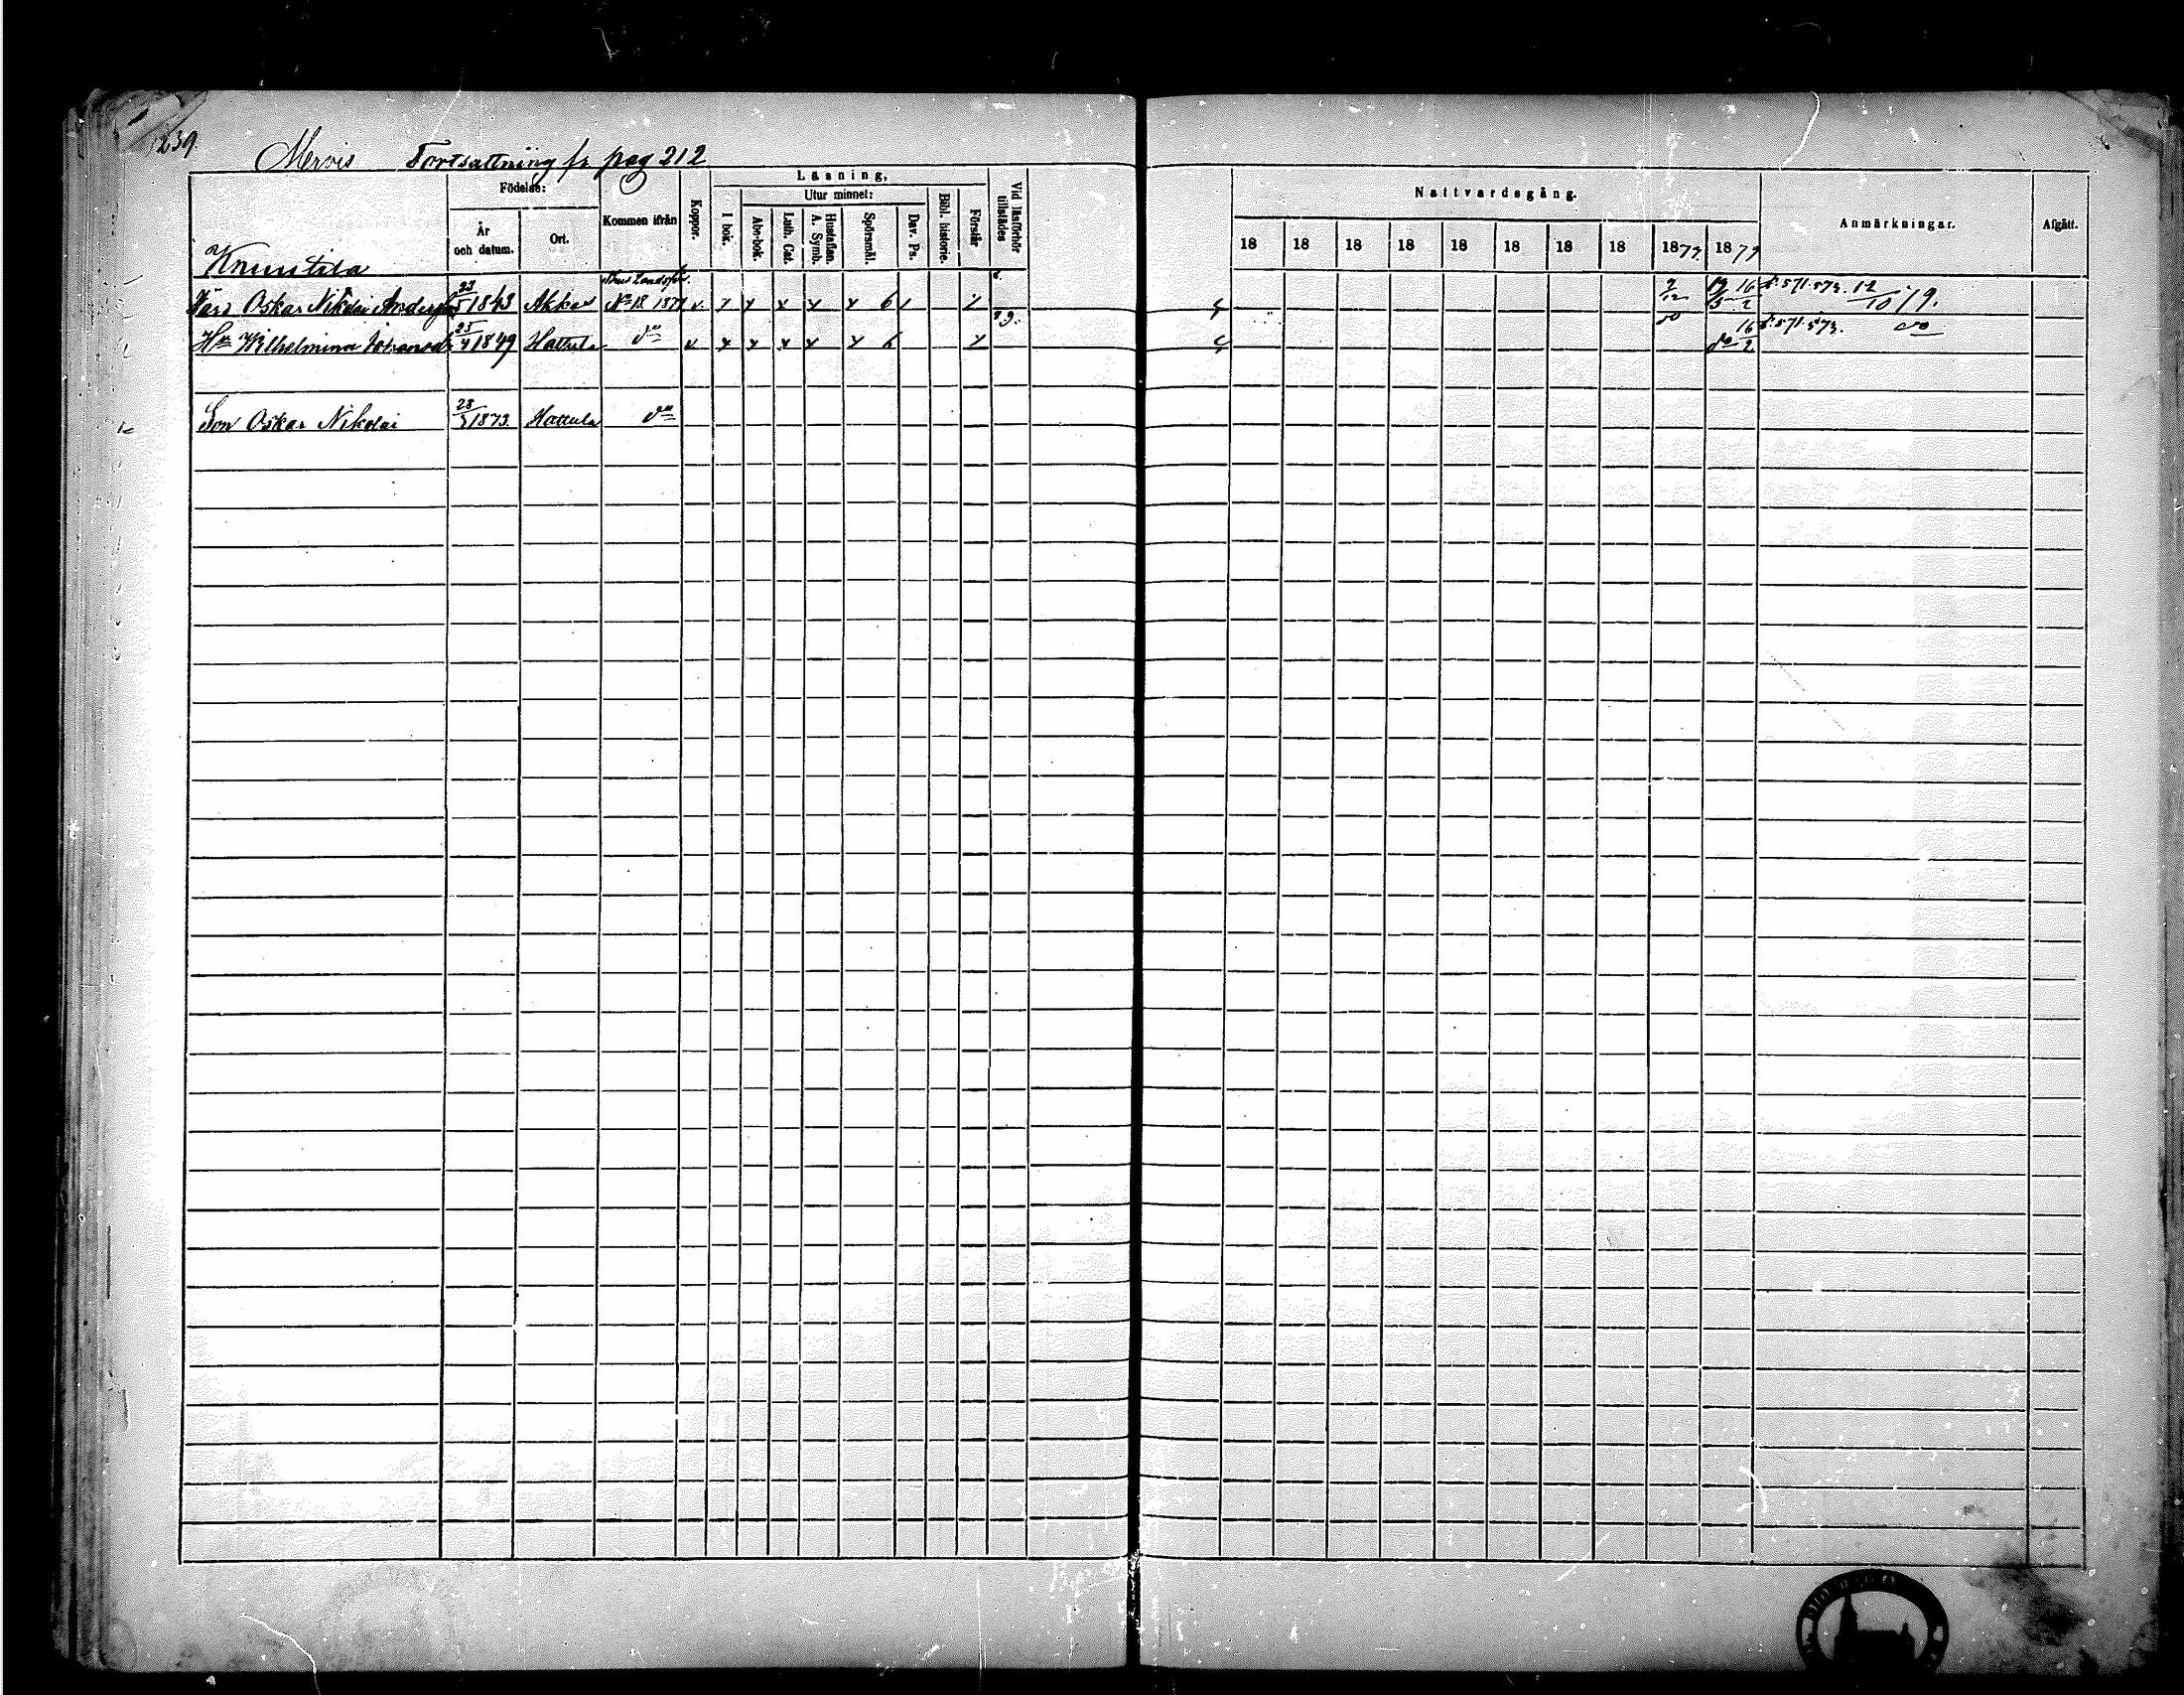 239.
Mervis Fortsättning fr pag 212
Födelse:
År och datum.
Ort.
Kommen ifrån
Koppor.
Läsning.
I bok.
Utur minnet:
Abc-bok.
Luth. Cat.
Hustaflan. A. Symb.
Spörsmål.
Dav. Ps.
Bibl. historie.
Förstår
Vid läsförhör tillstädes
Nattvardsgång.
18 18 18 18 18 18 18 18 1877. 1879
Anmärkningar.
Afgått.
Oskar Nikolai 23/5 1843 Akkas No 18 1877 v. x x x 6 1 9/12 16/2 f. 571. 573. 12/10 79.
Hu Wilhelmina 25/4 1849 Hattula do v x x x x x 6 do do 16/2 f. 571. 573. do
Son Oskar Nikolai 28/5 1873. Hattula do